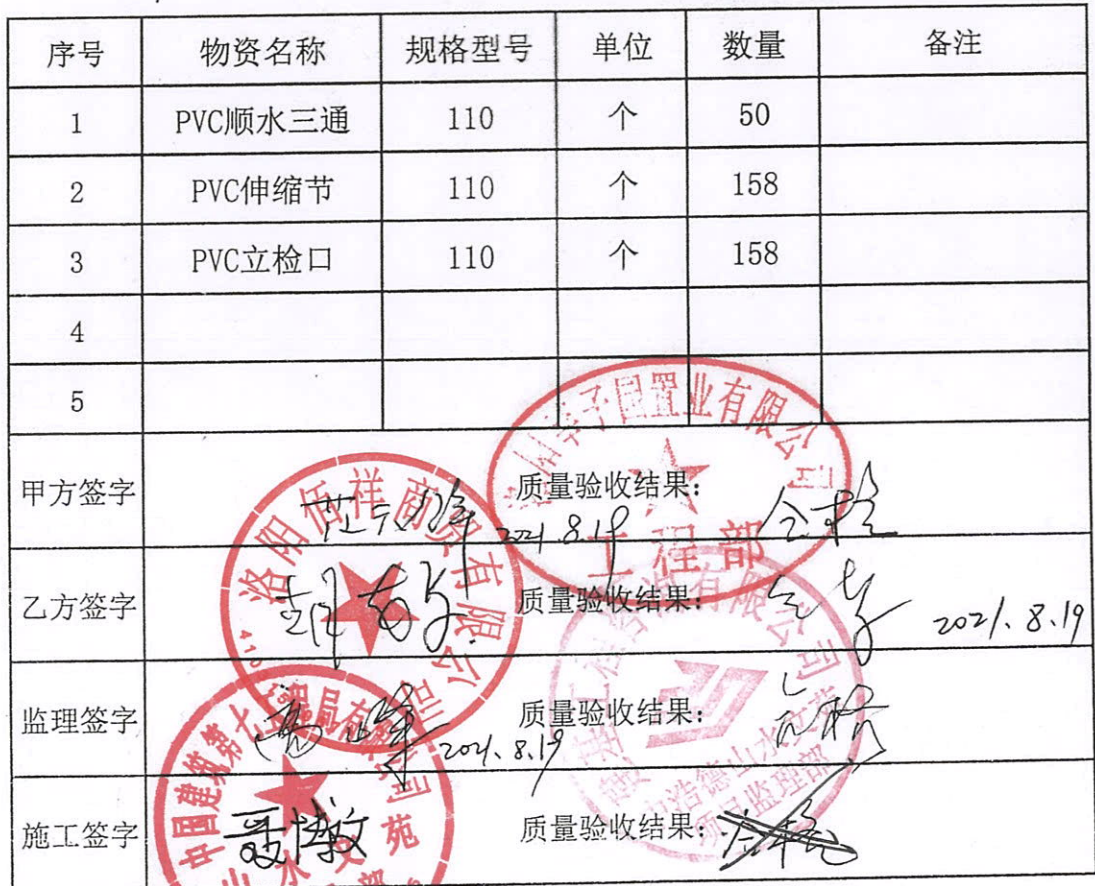 序号 物资名称 规格型号 单位 数量 备注
1 PVC顺水三通 110 个 50
2 PVC伸缩节 110 个 158
3 PVC立检口 110 个 158
4
5
甲方签字 2021.8.19 质量验收结果: 合格
乙方签字 质量验收结果: 合格 2021.8.19
监理签字 2021.8.19 质量验收结果: 合格
施工签字 质量验收结果: 合格
置业有限公司
工程部
洛阳佰祥商贸有限公司
有限公司
浩德山水文苑
项目监理部
中国建筑第七工程局有限公司
山水文苑